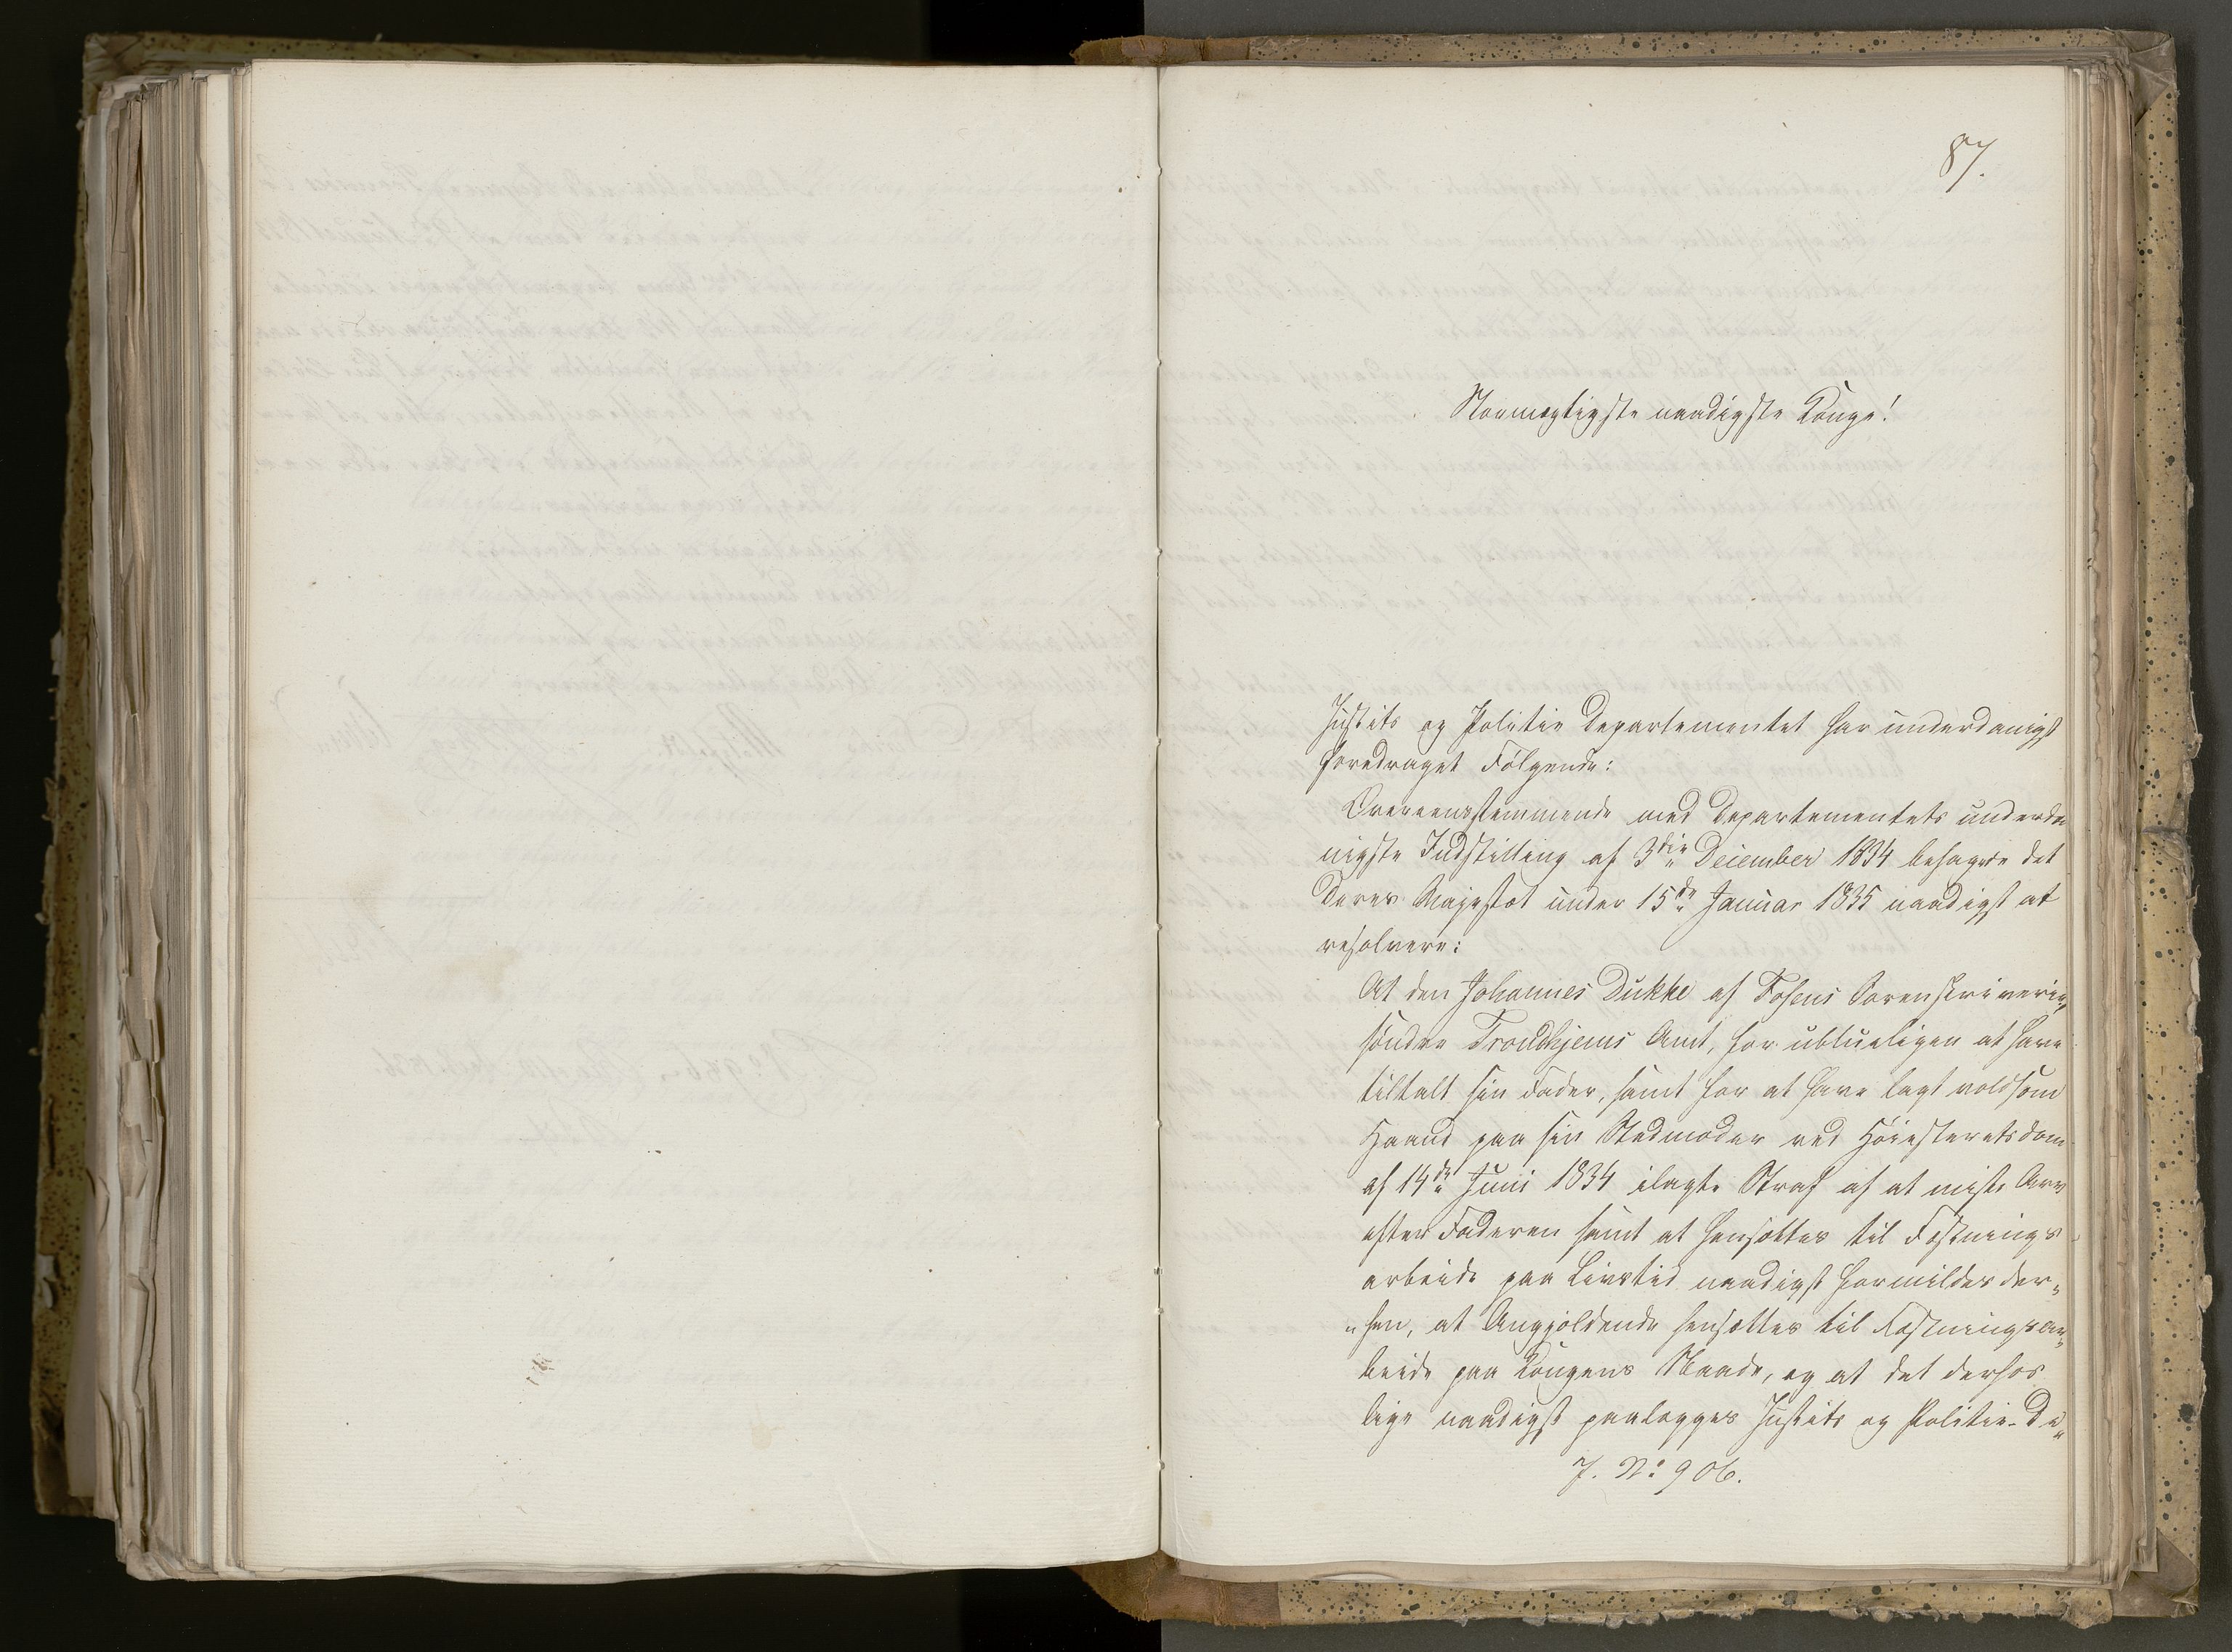 87.
Stormægtigste naadigste Konge!
Justits og Politie Departementet har underdanigst
foredraget Følgende:
Overeensstemmende med Departementets underda
nigste Indstilling af 3die December 1834 behagede det
Deres Majestæt under 15de Januar 1835 naadigst at
resolvere:
At den Johannes Dukke af Fosens Sorenskriverie,
søndre Trondhjems Amt, for ublueligen at have
tiltalt sin Fader, samt for at have lagt voldsom
Haand paa sin Stedmoder ved Høiesteretsdom
af 14de Juni 1834 ilagte Straf af at miste Arv
efter Faderen samt at hensættes til Fæstnings
arbeide paa Livstid naadigst formildes der„
„hen, at Angjældende hensættes til Fæstningsar„
beide paa Kongens Naade, og at det derhos
lige naadigst paalægges Justits og Politie-De„
J. No 906.